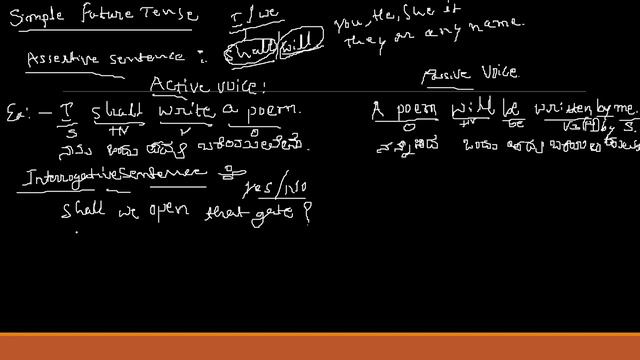 Simple Future Tense
I / we
shall / will
You, He, She it
They or any name.
Assertive sentence :
Active Voice :
Passive Voice
Ex:- I shall write a poem.
S HV V O
A poem will be written by me.
O HV be V3 by S.
ನಾನು ಒಂದು
ಒಂದು
Interrogative Sentence :-
Yes / No
Shall we open that gate ?